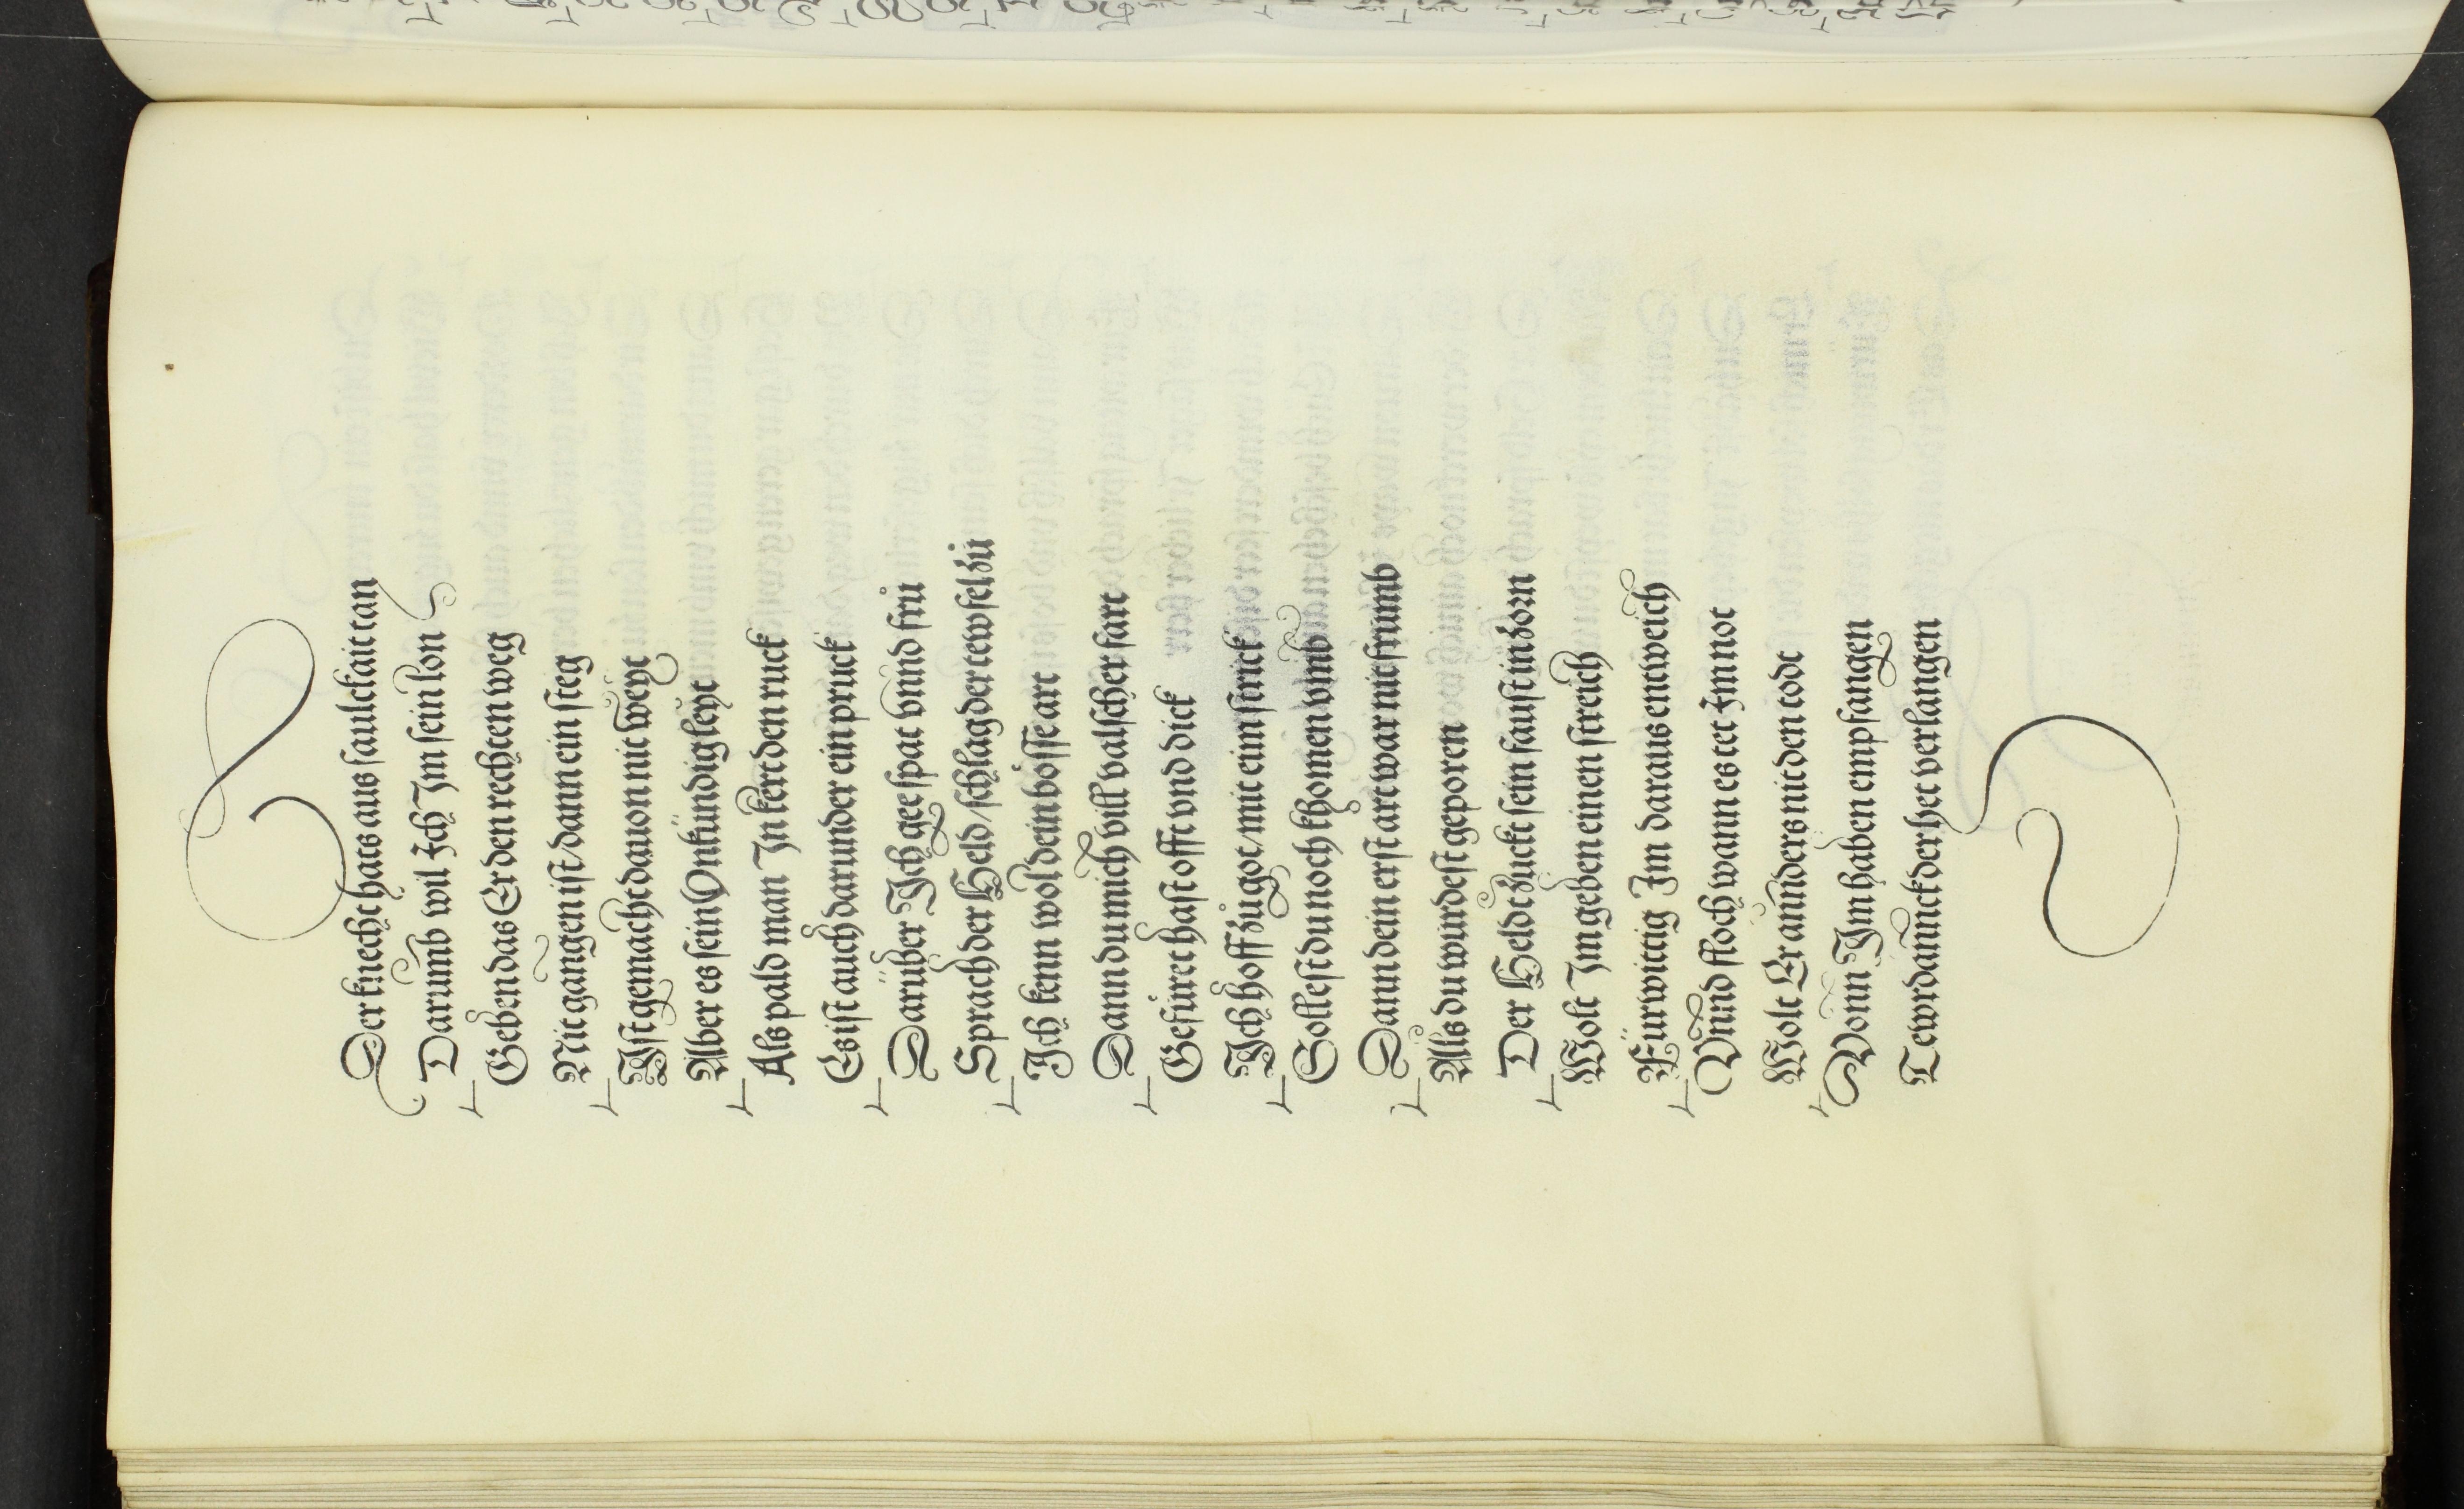 Der knecht hats aus faulckait tan
Darumb wil Ich Im sein lon
Geben das Er den rechten weg
Nit gangen ist/dann ein steg
Ist gemacht dauon nit weyt
Aber es sein Onkündig leyt
Als pald man In kert den ruck
Es ist auch darunder ein pruck
Darüber Ich gee spat vnnd frü
Sprach der Held/schlag der tewfel zů
Ich kenn wol dein bösse art
Dann du mich vill valscher fart
Gefüret hast offt vnd dick
Ich hoff zů got/mit eim strick
Sollest du noch khomen vmb
Dann dein erst art war nit frumb
Als du wurdest geporen
Der Heldt zuckt sein faust in zorn
Wolt Im geben einen streich
Fürwittig Im daraus entweich
Vnnd floch wann es tet Im not
Wolt Er annders nit den todt
Vonn Im haben empfangen
Tewrdannck der het verlangen